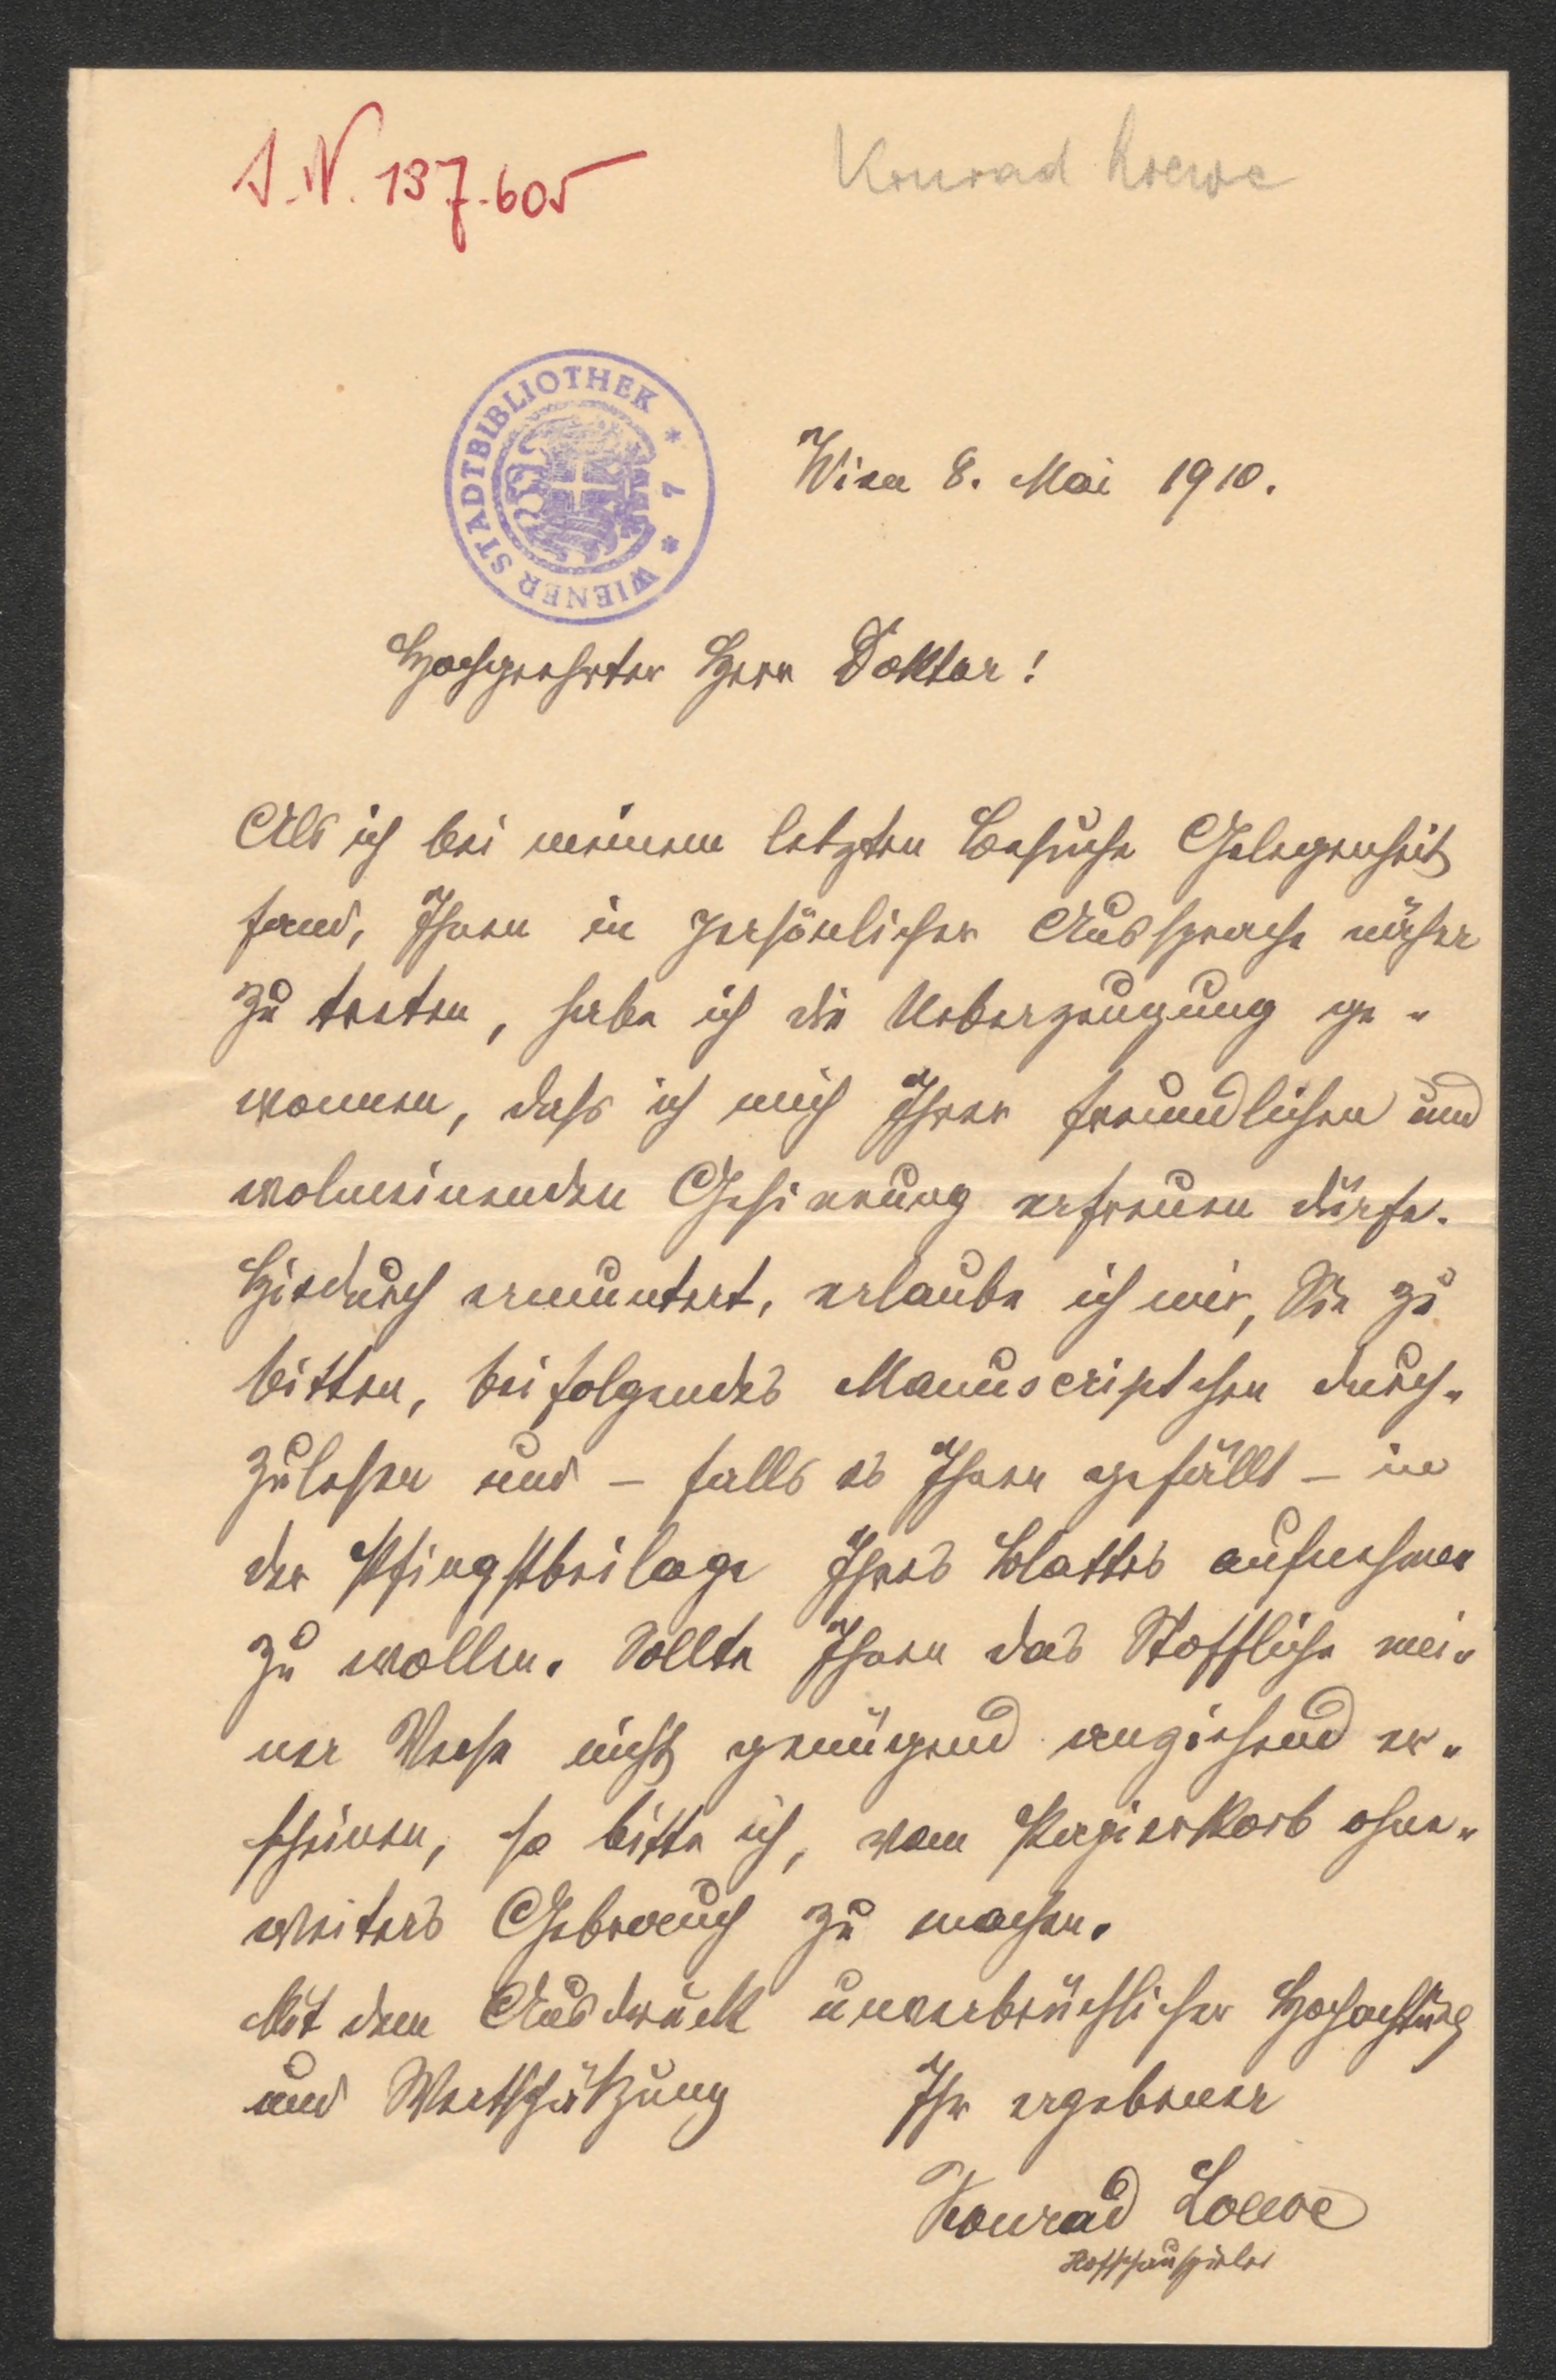 I.N. 137.605
Konrad Loewe
WIENER STADTBIBLIOTHEK * 7 *
Wien 8. Mai 1910.
Hochgeehrter Herr Doktor!
Als ich bei meinem letzten Besuche Gelegenheit
fand, Ihnen in persönlicher Aussprache näher
zu treten, habe ich die Ueberzeugung ge-
wonnen, dass ich mich Ihrer freundlichen und
wolmeinenden Gesinnung erfreuen dürfe.
Hiedurch ermuntert, erlaube ich mir, Sie zu
bitten, beifolgendes Manuscriptchen durch-
zulesen und – falls es Ihnen gefällt – in
der Pfingstbeilage Ihres Blattes aufnehmen
zu wollen. Sollte Ihnen das Stoffliche mei-
ner Verse nicht genügend anziehend er-
scheinen, so bitte ich, vom Papierkorb ohne-
weiters Gebrauch zu machen.
Mit dem Ausdruck unverbrüchlicher Hochachtung
und Wertschätzung Ihr ergebener
Konrad Loewe
Hofschauspieler